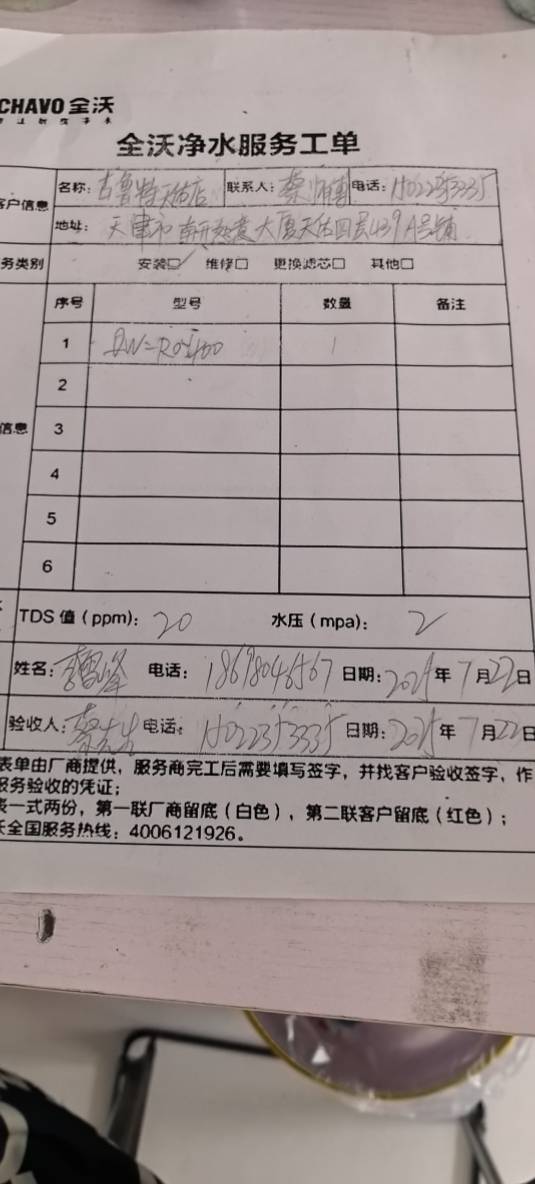 CHAVO 全沃
全沃净水服务工单
客户信息
名称: 古鲁特天佑店 联系人: 蔡师傅 电话:
地址: 天津市 大厦天佑四层439A号铺
务类别 安装☑ 维修□ 更换滤芯□ 其他□
序号 型号 数量 备注
1 1
2
信息 3
4
5
6
TDS 值 (ppm): 20 水压 (mpa): 2
姓名: 电话: 18698046567 日期: 2025年 7月22日
验收人: 电话: 日期: 2025年 7月22日
表单由厂商提供，服务商完工后需要填写签字，并找客户验收签字，作
服务验收的凭证;
表一式两份，第一联厂商留底 (白色) ，第二联客户留底 (红色) ;
沃全国服务热线: 4006121926。